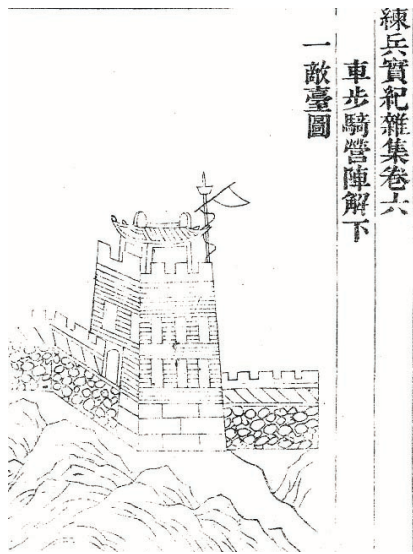 練兵實紀雜集卷六
車步騎營陣解下
一敵臺圖